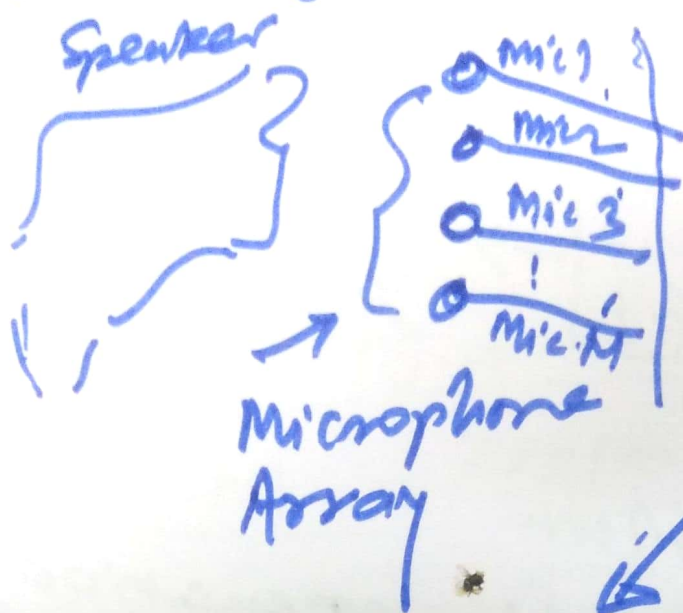 Speaker
Mic 1
Mic 2
Mic 3
Mic. M
Microphone
Array